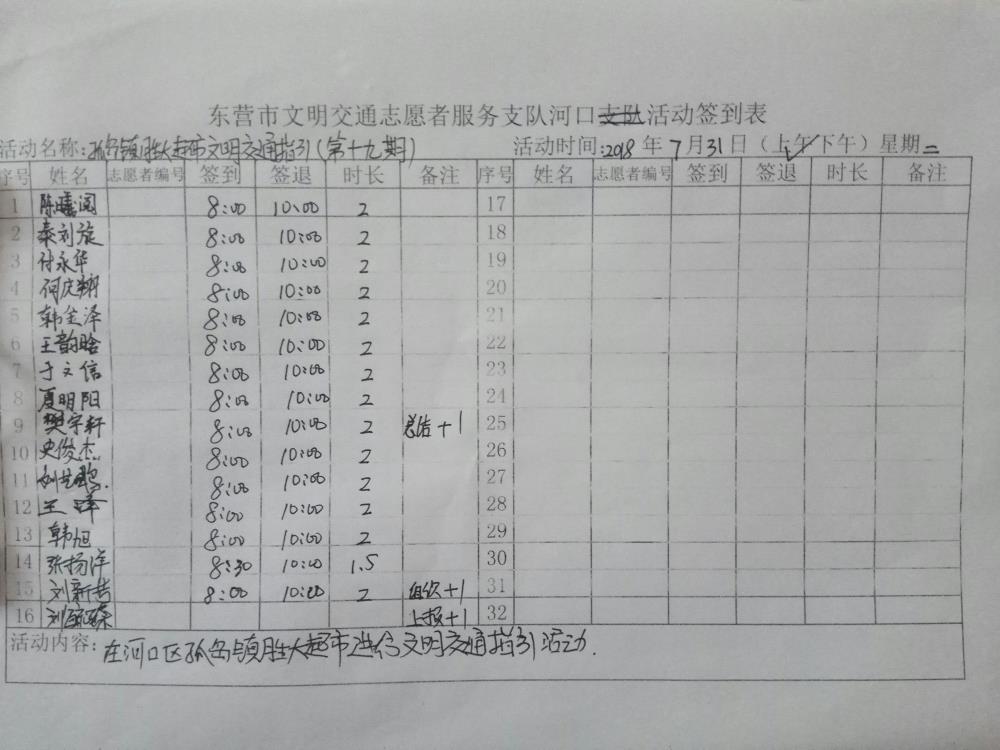 东营市文明交通志愿者服务支队河口支队活动签到表
活动名称:孤岛镇胜大超市文明交通指引(第十九期) 活动时间:2018年7月31日（上午/下午）星期二
序号 姓名 志愿者编号 签到 签退 时长 备注 序号 姓名 志愿者编号 签到 签退 时长 备注
1 8:00 10:00 2 17
2 秦刘旋 8:00 10:00 2 18
3 付永华 8:00 10:00 2 19
4 何庆翔 8:00 10:00 2 20
5 韩金泽 8:00 10:00 2 21
6 王韵晗 8:00 10:00 2 22
7 于文信 8:00 10:00 2 23
8 夏明阳 8:00 10:00 2 24
9 樊宇轩 8:00 10:00 2 总结+1 25
10 史俊杰 8:00 10:00 2 26
11 8:00 10:00 2 27
12 王泽 8:00 10:00 2 28
13 韩旭 8:00 10:00 2 29
14 张扬洋 8:30 10:00 1.5 30
15 刘新苦 8:00 10:00 2 组织+1 31
16 上报+1 32
活动内容: 在河口区孤岛镇胜大超市进行文明交通指引活动.